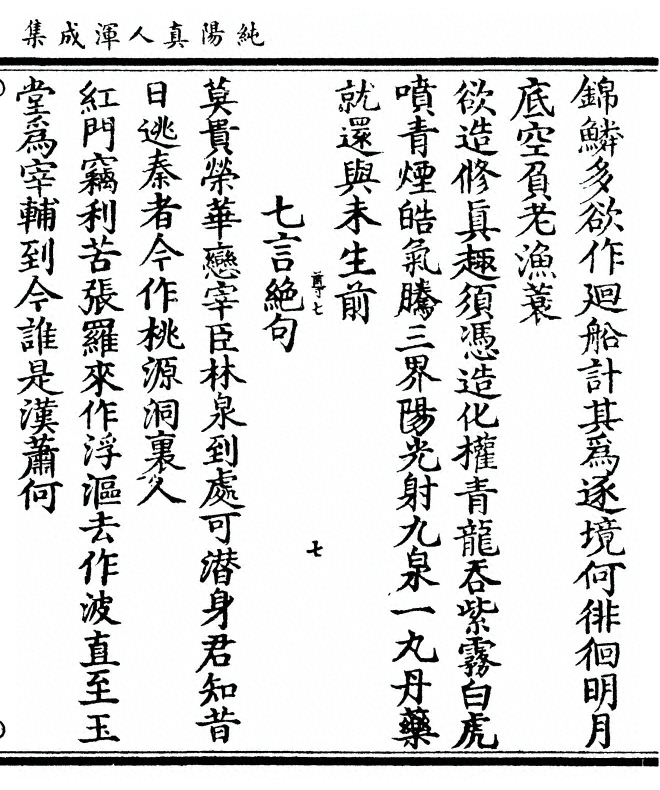 純陽真人渾成集
錦鱗多欲作廻船計其為逐境何徘徊明月
底空負老漁蓑
欲造修真趣須憑造化權青龍吞紫霧白虎
噴青煙皓氣騰三界陽光射九泉一丸丹藥
就還與未生前
尊七
七
七言絕句
莫貴榮華戀宰臣林泉到處可潜身君知昔
日逃秦者今作桃源洞裏人
紅門竊利苦張羅來作浮漚去作波直至玉
堂為宰輔到今誰是漢蕭何